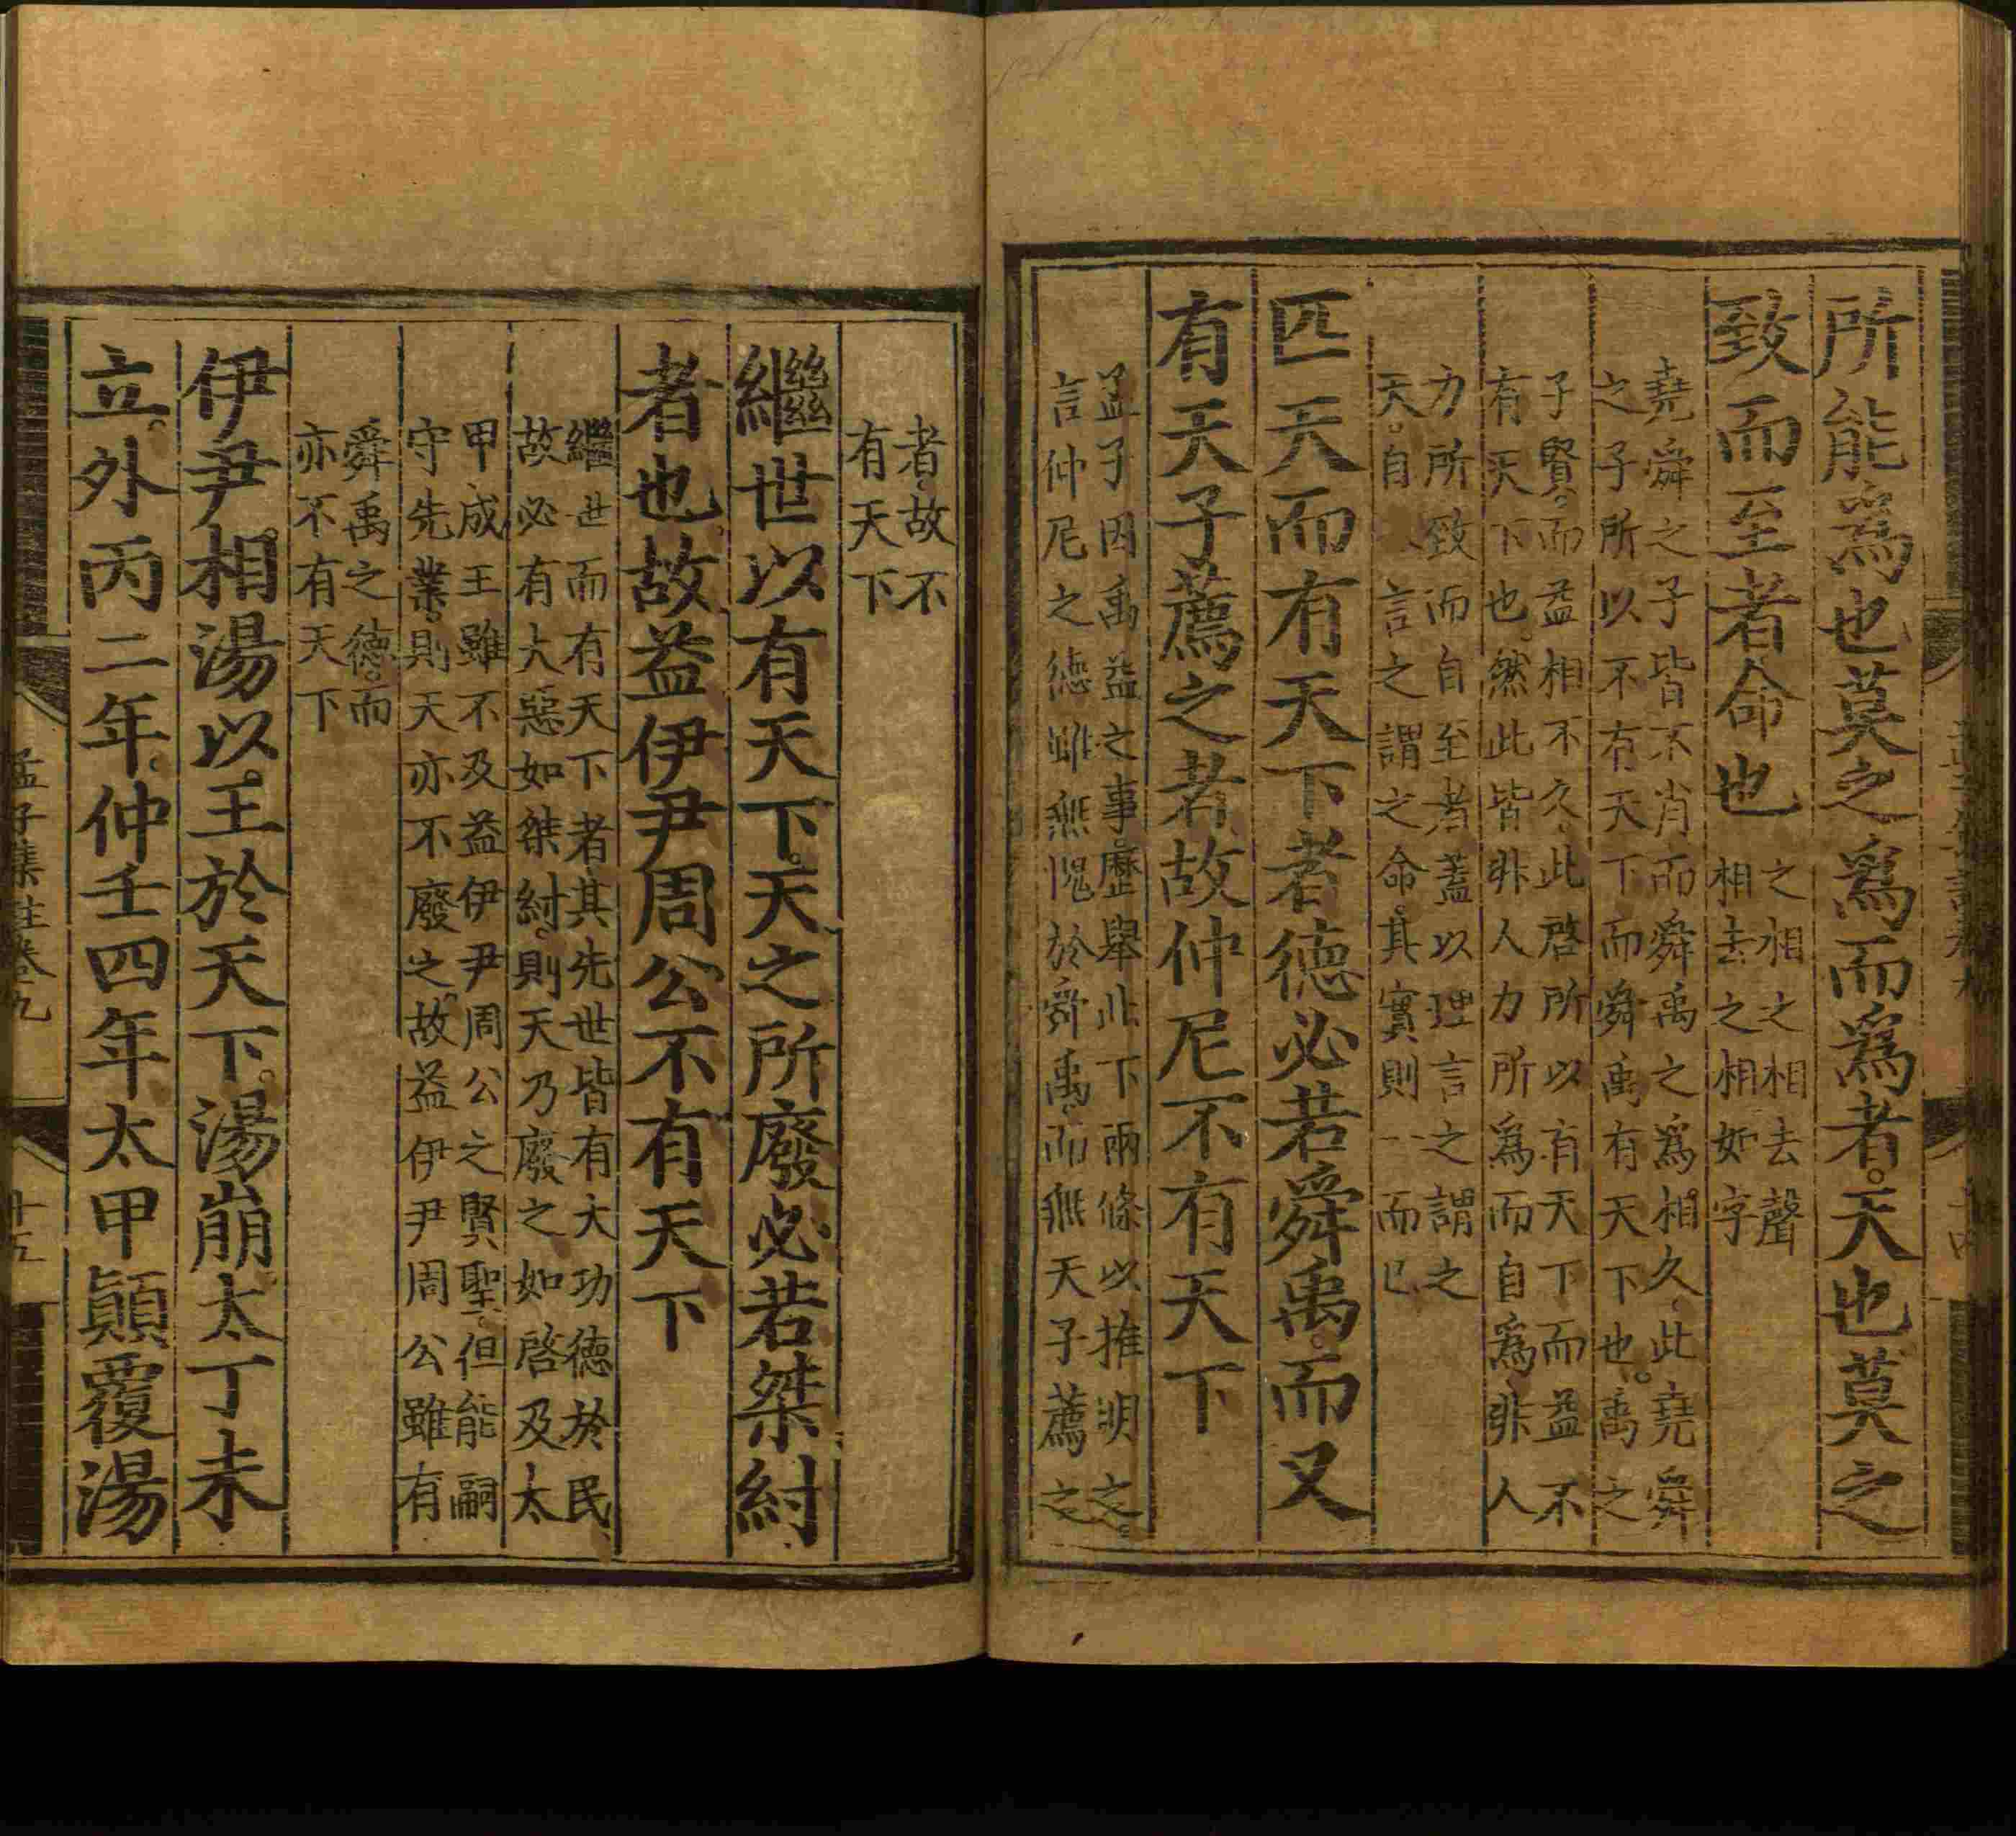 所能爲也莫之爲而爲者天也莫之
致而至者命也
之相之相去聲
相去之相如字
堯舜之子皆不肖而舜禹之爲相久此堯舜
之子所以不有天下而舜禹有天下也禹之
子賢而益相不久此啓所以有天下而益不
有天下也然此皆非人力所爲而自爲非人
力所致而自至者蓋以理言之謂之
天自人言之謂之命其實則一而已
匹夫而有天下者德必若舜禹而又
有天子薦之者故仲尼不有天下
孟子因禹益之事歷舉此下兩條以推明之
言仲尼之德雖無愧於舜禹而無天子薦之
者故不
有天下
繼世以有天下天之所廢必若桀紂
者也故益伊尹周公不有天下
繼世而有天下者其先世皆有大功德於民
故必有大惡如桀紂則天乃廢之如啓及太
甲成王雖不及益伊尹周公之賢聖但能嗣
守先業則天亦不廢之故益伊尹周公雖有
舜禹之德而
亦不有天下
伊尹相湯以王於天下湯崩太丁未
立外丙二年仲壬四年太甲顚覆湯
孟子集註卷九
十五